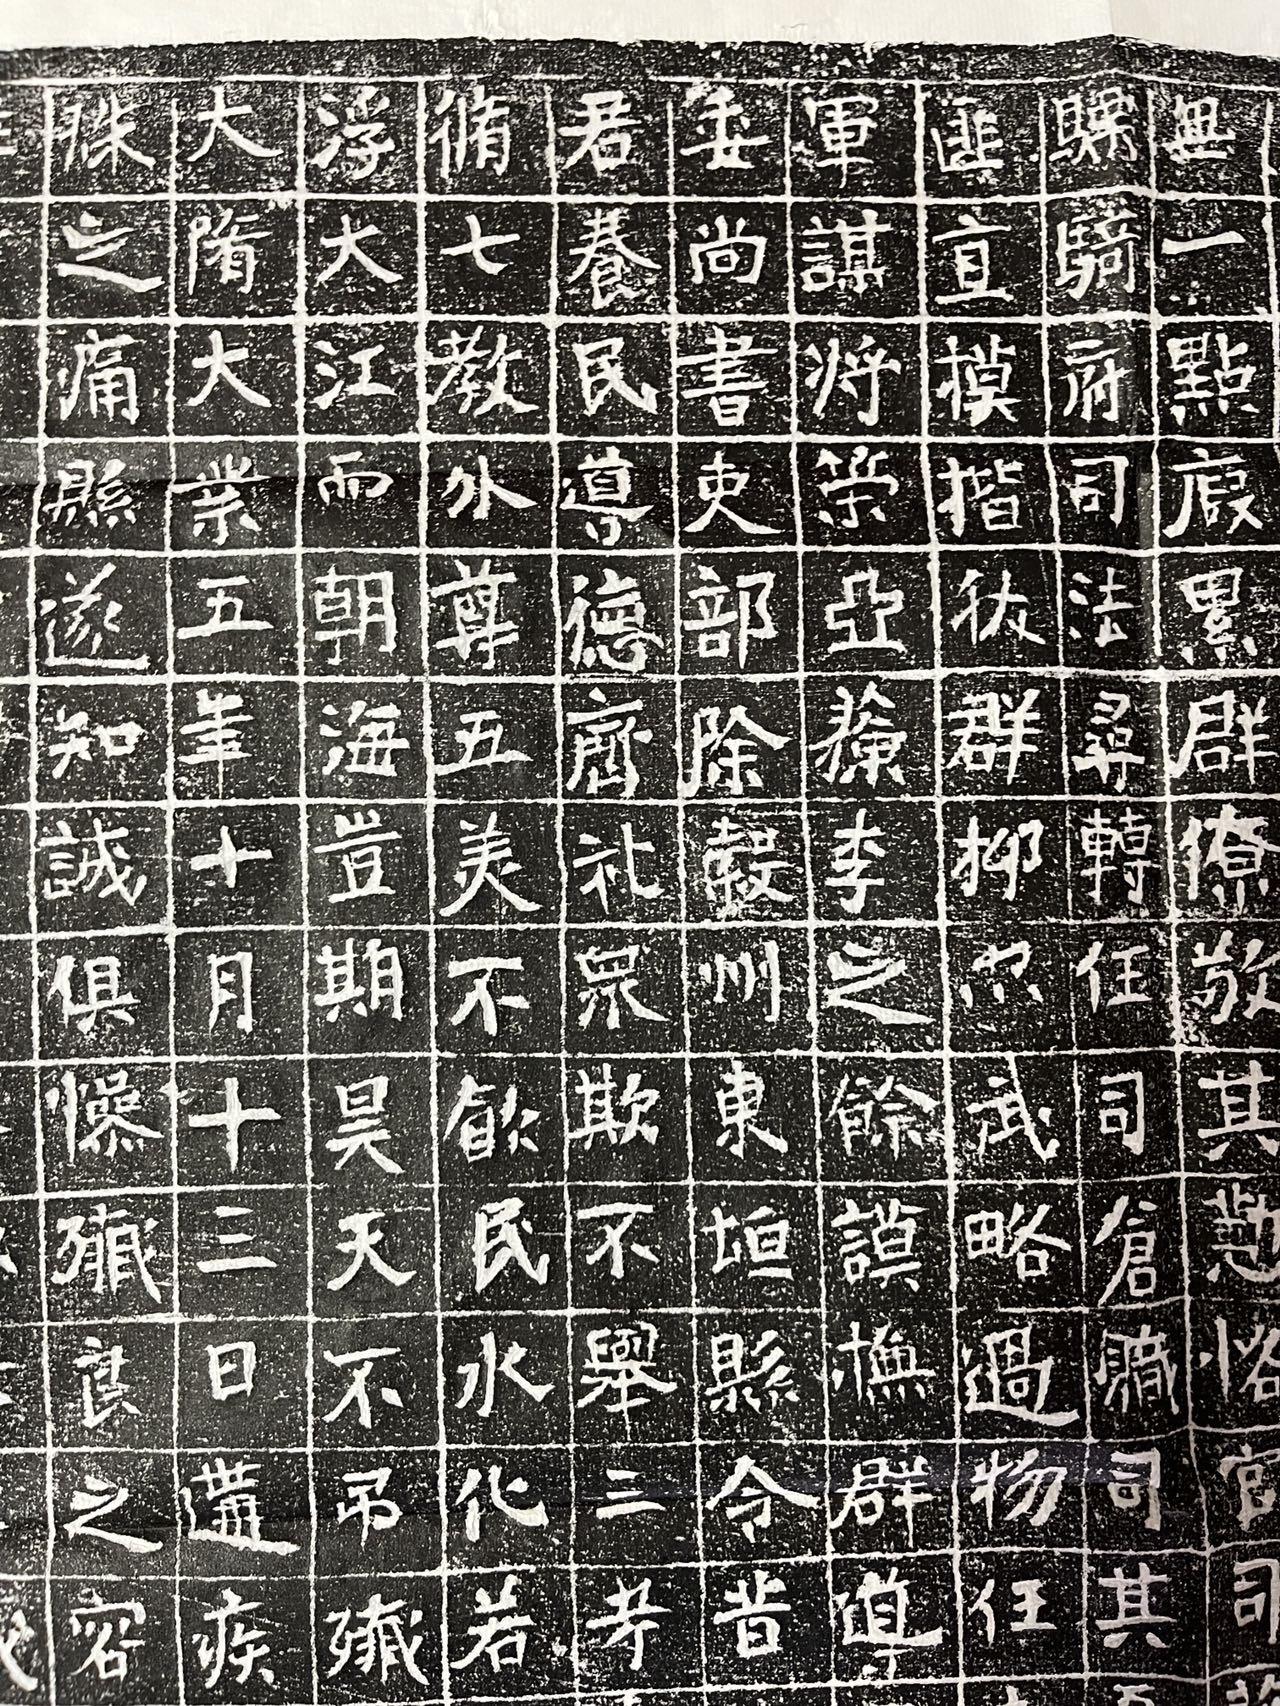 無一點瑕累群僚敬其懃恪官司
驃騎府司法尋轉任司倉職司其
匪直模揩彼群抑亦武略過物任
軍謀將策亞孫李之餘謨撫群導
委尚書吏部除穀州東垣縣令昔
君養民導德齊礼眾欺不舉三考
脩七教外尊五美不歚民水化若
浮大江而朝海豈期昊天不弔殲
大隋大業五年十月十三日遘疾
之痛縣遂知誠俱懆殲良之容